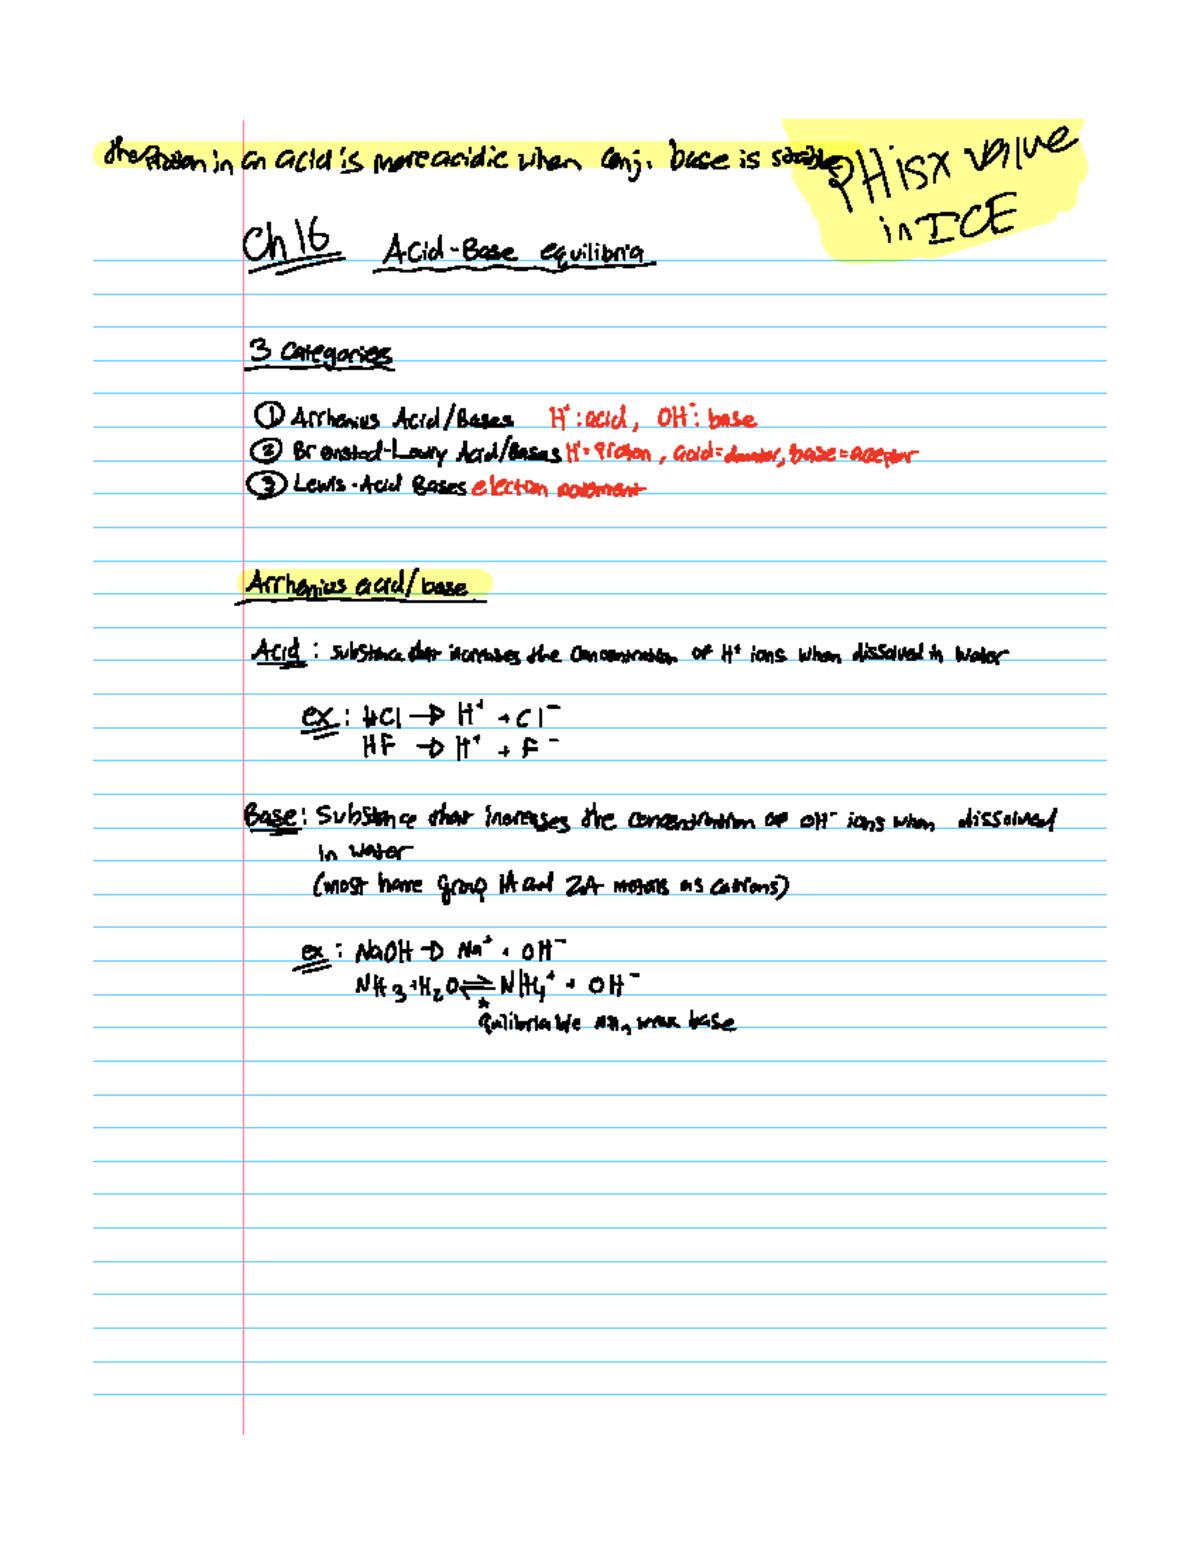 the Proton in an acid is more acidic when conj. base is stable
PH is x value
in ICE
Ch 16 Acid-Base equilibria
3 Categories
① Arrhenius Acid/Bases H⁺: acid, OH⁻: base
② Bronsted-Lowry Acid/Bases H⁺= Proton, acid=donator, base=acceptor
③ Lewis-Acid Bases electron movement
Arrhenius acid/base
Acid: substance that increases the concentration of H⁺ ions when dissolved in water
ex: HCl → H⁺ + Cl⁻
HF → H⁺ + F⁻
Base: Substance that increases the concentration of OH⁻ ions when dissolved
in water
(most have group 1A and 2A metals as cations)
ex: NaOH → Na⁺ + OH⁻
NH₃ + H₂O ⇌ NH₄⁺ + OH⁻
* rxn, weak base